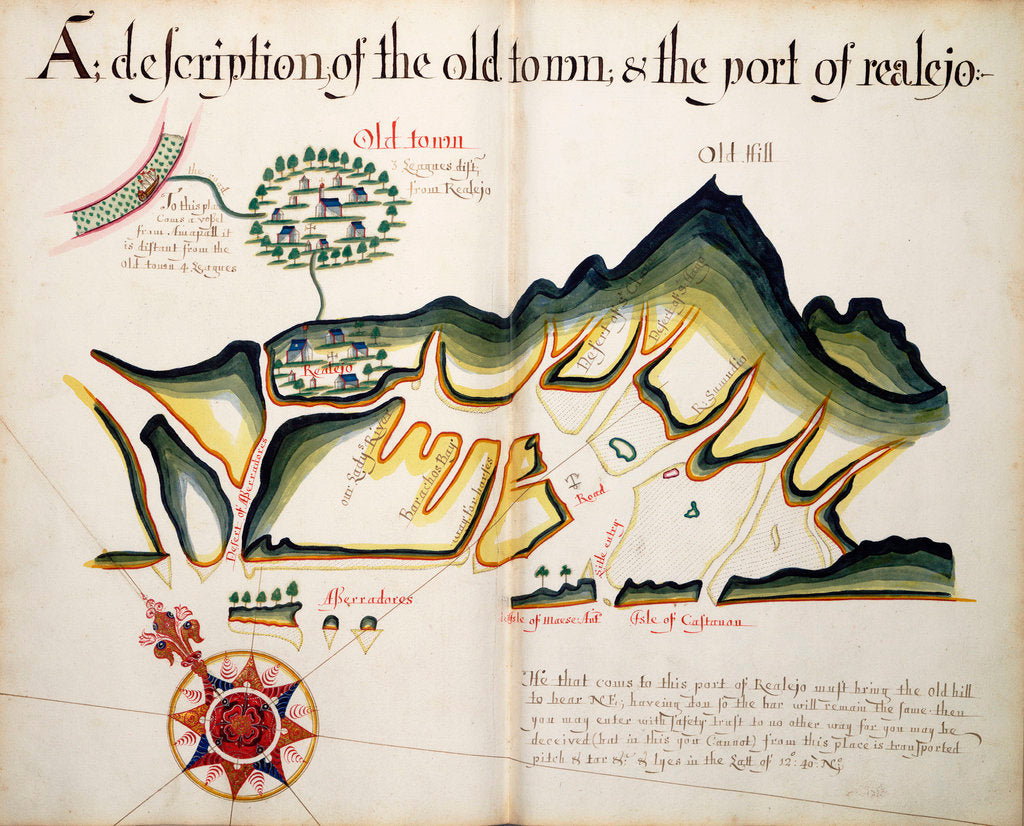 A; description, of the old town; & the port of realejo:-
Old town
3 Leagues dist,
from Realejo
Old Hill
the
To this pla
Coms a vessel
from Amapall it
is distant from the
Old town 4 Leagues
Realejo
Desert of
Desert of
R. Samudio
our Ladys River
Barachos Bay
way for barkes
Desert of Aserradores
Road
little entry
Aserradores
Isle of Maese Ant.
Isle of Castanon
He that coms to this port of Realejo must bring the Old hill
to bear NE; haveing don so the bar will remain the same then
you may enter with safety trust to no other way for you may be
deceived (but in this you Cannot) from this place is transported
pitch & tar &c. & lyes in the Latt of 12°: 40: No